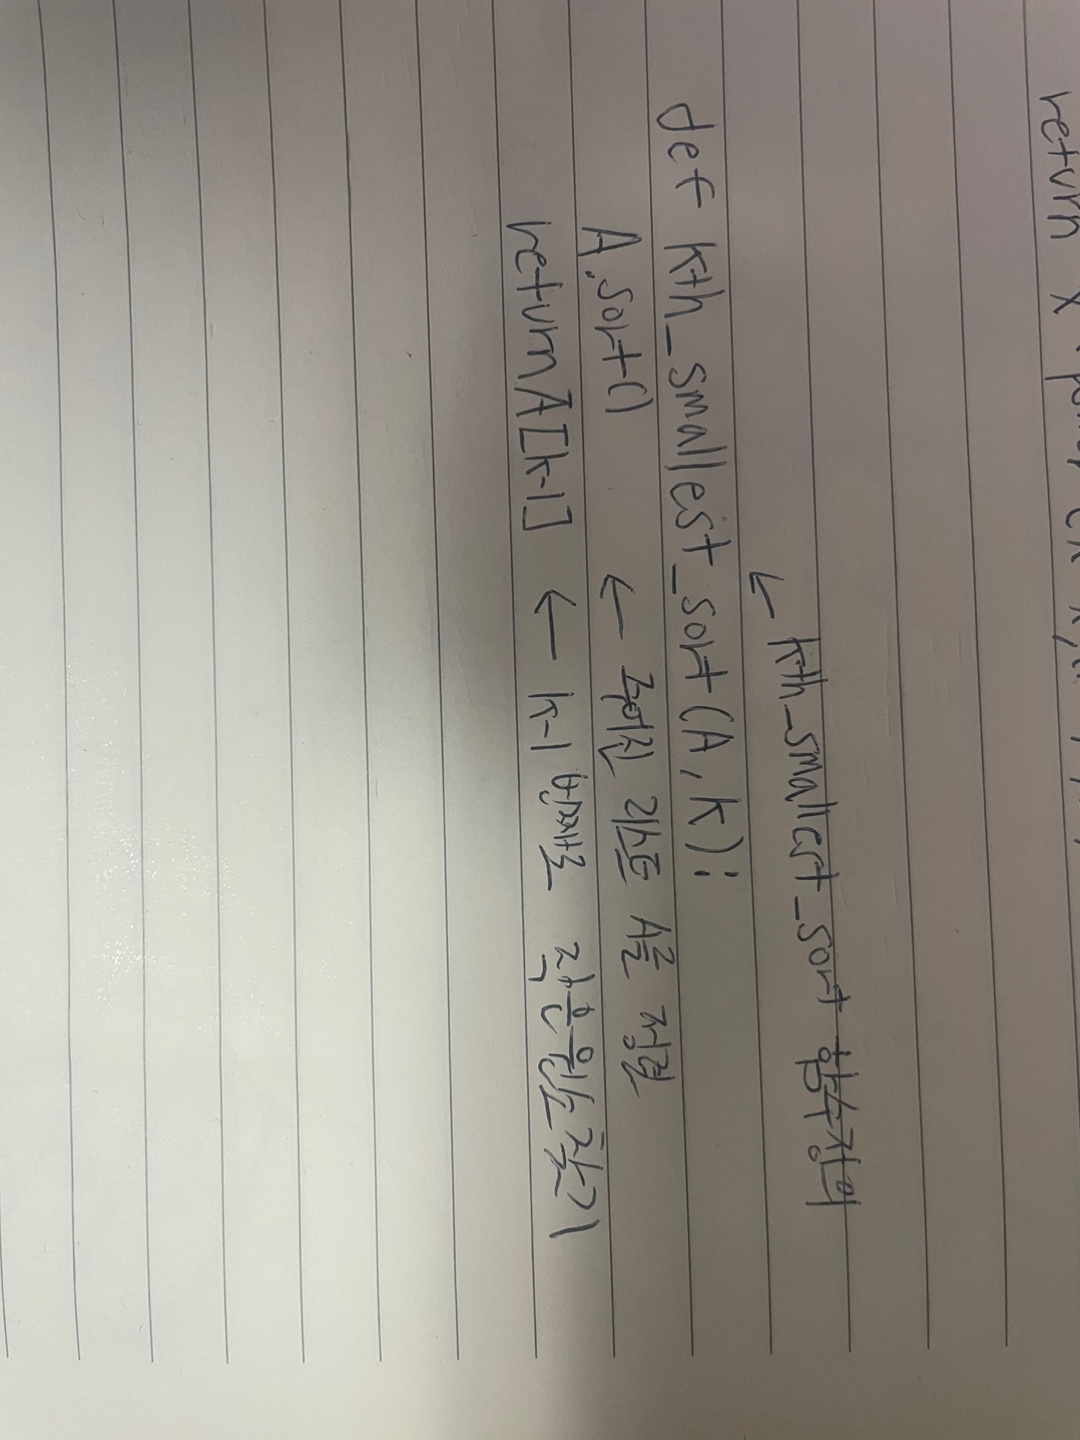 return x
← kth_smallest_sort 함수정의
def kth_smallest_sort(A, k):
A.sort() ← 주어진 리스트 A를 정렬
return A[k-1] ← k-1 번째로 작은 원소 찾기